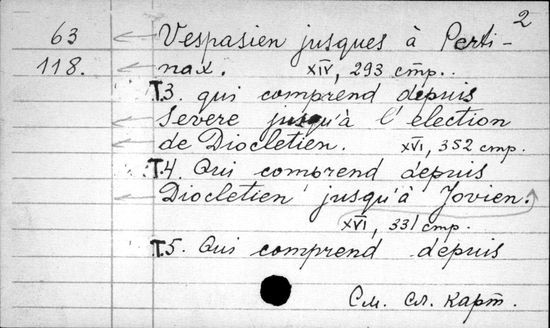 2
63 Vespasien jusques à Perti-
118. nax. XIV, 293 стр.
T.3. qui comprend depuis
Severe jusqu'à l'election
de Diocletien. XVI, 352 стр.
T.4. Qui comprend depuis
Diocletien jusqu'à Jovien.
XVI, 331 стр.
T.5. Qui comprend depuis
См. сл. карт.